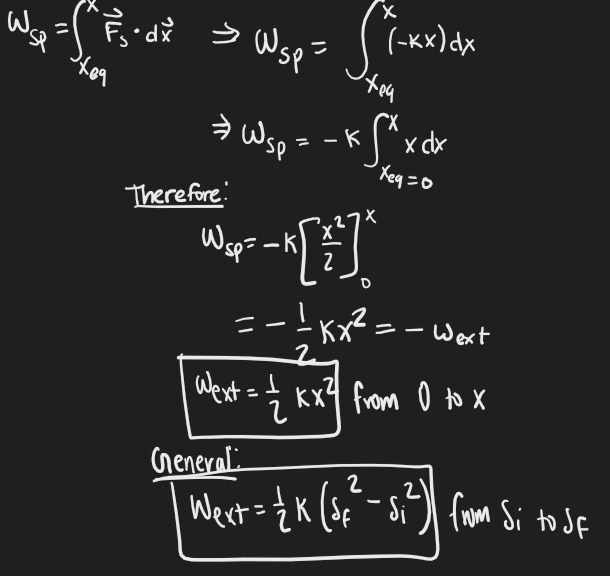 W_sp = ∫_{x_eq}^{x} F⃗_s · dx⃗ ⇒ W_sp = ∫_{x_eq}^{x} (-kx) dx
⇒ W_sp = -k ∫_{x_eq=0}^{x} x dx
Therefore:
W_sp = -k [x²/2]_0^x
= -1/2 kx² = -W_ext
W_ext = 1/2 kx² from 0 to x
General:
W_ext = 1/2 k (δ_f² - δ_i²) from δ_i to δ_f